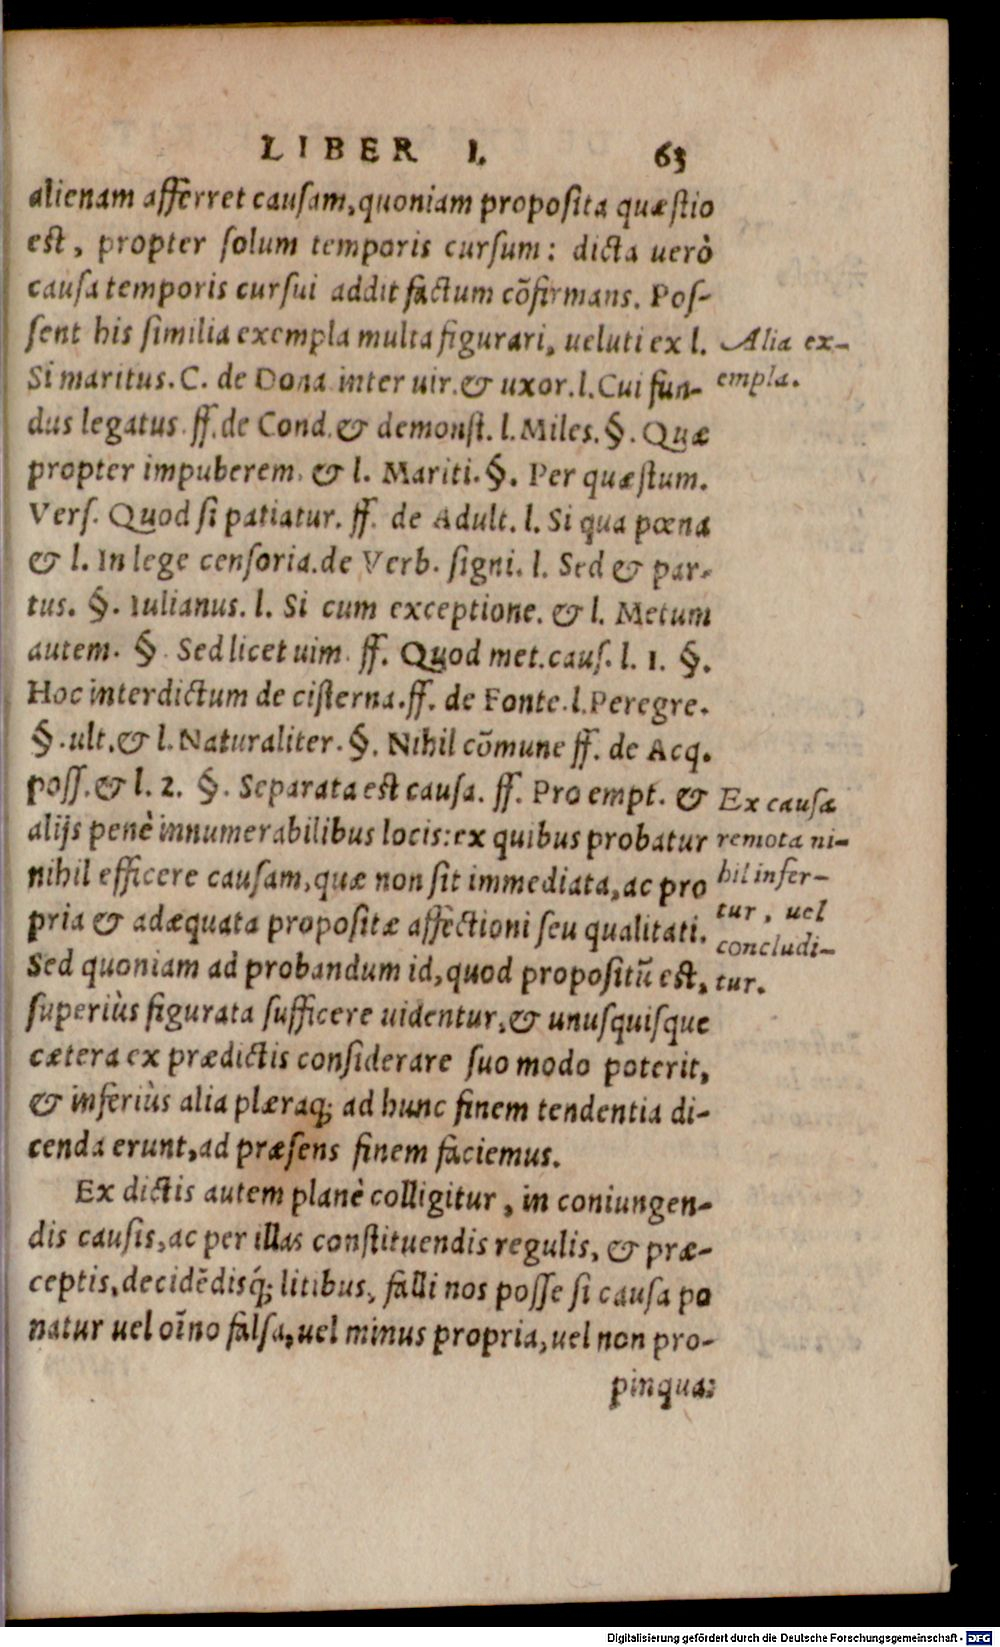 LIBER I. 63
alienam afferret causam, quoniam proposita quæstio
est, propter solum temporis cursum: dicta uerò
causa temporis cursui addit factum cõfirmans. Pos-
sent his similia exempla multa figurari, ueluti ex l.
Si maritus. C. de Dona inter uir. & uxor. l. Cui fun-
dus legatus. ff. de Cond. & demonst. l. Miles. §. Quæ
propter impuberem. & l. Mariti. §. Per quæstum.
Vers. Quod si patiatur. ff. de Adult. l. Si qua pœna
& l. In lege censoria. de Verb. signi. l. Sed & par-
tus. §. Iulianus. l. Si cum exceptione. & l. Metum
autem. § Sed licet uim. ff. Quod met. caus. l. 1. §.
Hoc interdictum de cisterna. ff. de Fonte. l. Peregre.
§. ult. & l. Naturaliter. §. Nihil cõmune ff. de Acq.
poss. & l. 2. §. Separata est causa. ff. Pro empt. &
alijs penè innumerabilibus locis: ex quibus probatur
nihil efficere causam, quæ non sit immediata, ac pro
pria & adæquata propositæ affectioni seu qualitati.
Sed quoniam ad probandum id, quod propositũ est,
superiùs figurata sufficere uidentur, & unusquisque
cætera ex prædictis considerare suo modo poterit,
& inferiùs alia plæraq; ad hunc finem tendentia di-
cenda erunt, ad præsens finem faciemus.
Ex dictis autem planè colligitur, in coniungen-
dis causis, ac per illas constituendis regulis, & præ-
ceptis, decidẽdisq́; litibus, falli nos posse si causa po
natur uel oĩno falsa, uel minus propria, uel non pro-
pinqua:
Alia ex-
empla.
Ex causa
remota ni-
hil infer-
tur, uel
concludi-
tur.
Digitalisierung gefördert durch die Deutsche Forschungsgemeinschaft - DFG